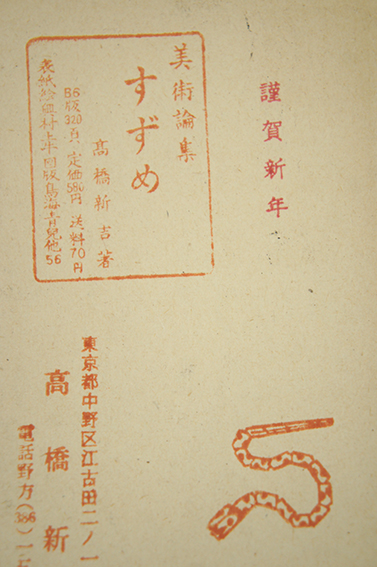 謹賀新年
美術論集
すずめ
高橋新吉著
B6版320頁 定価580円 送料70円
図版鳥海青児他56
東京都中野区江古田二ノ一
高橋新
電話野方(386)一